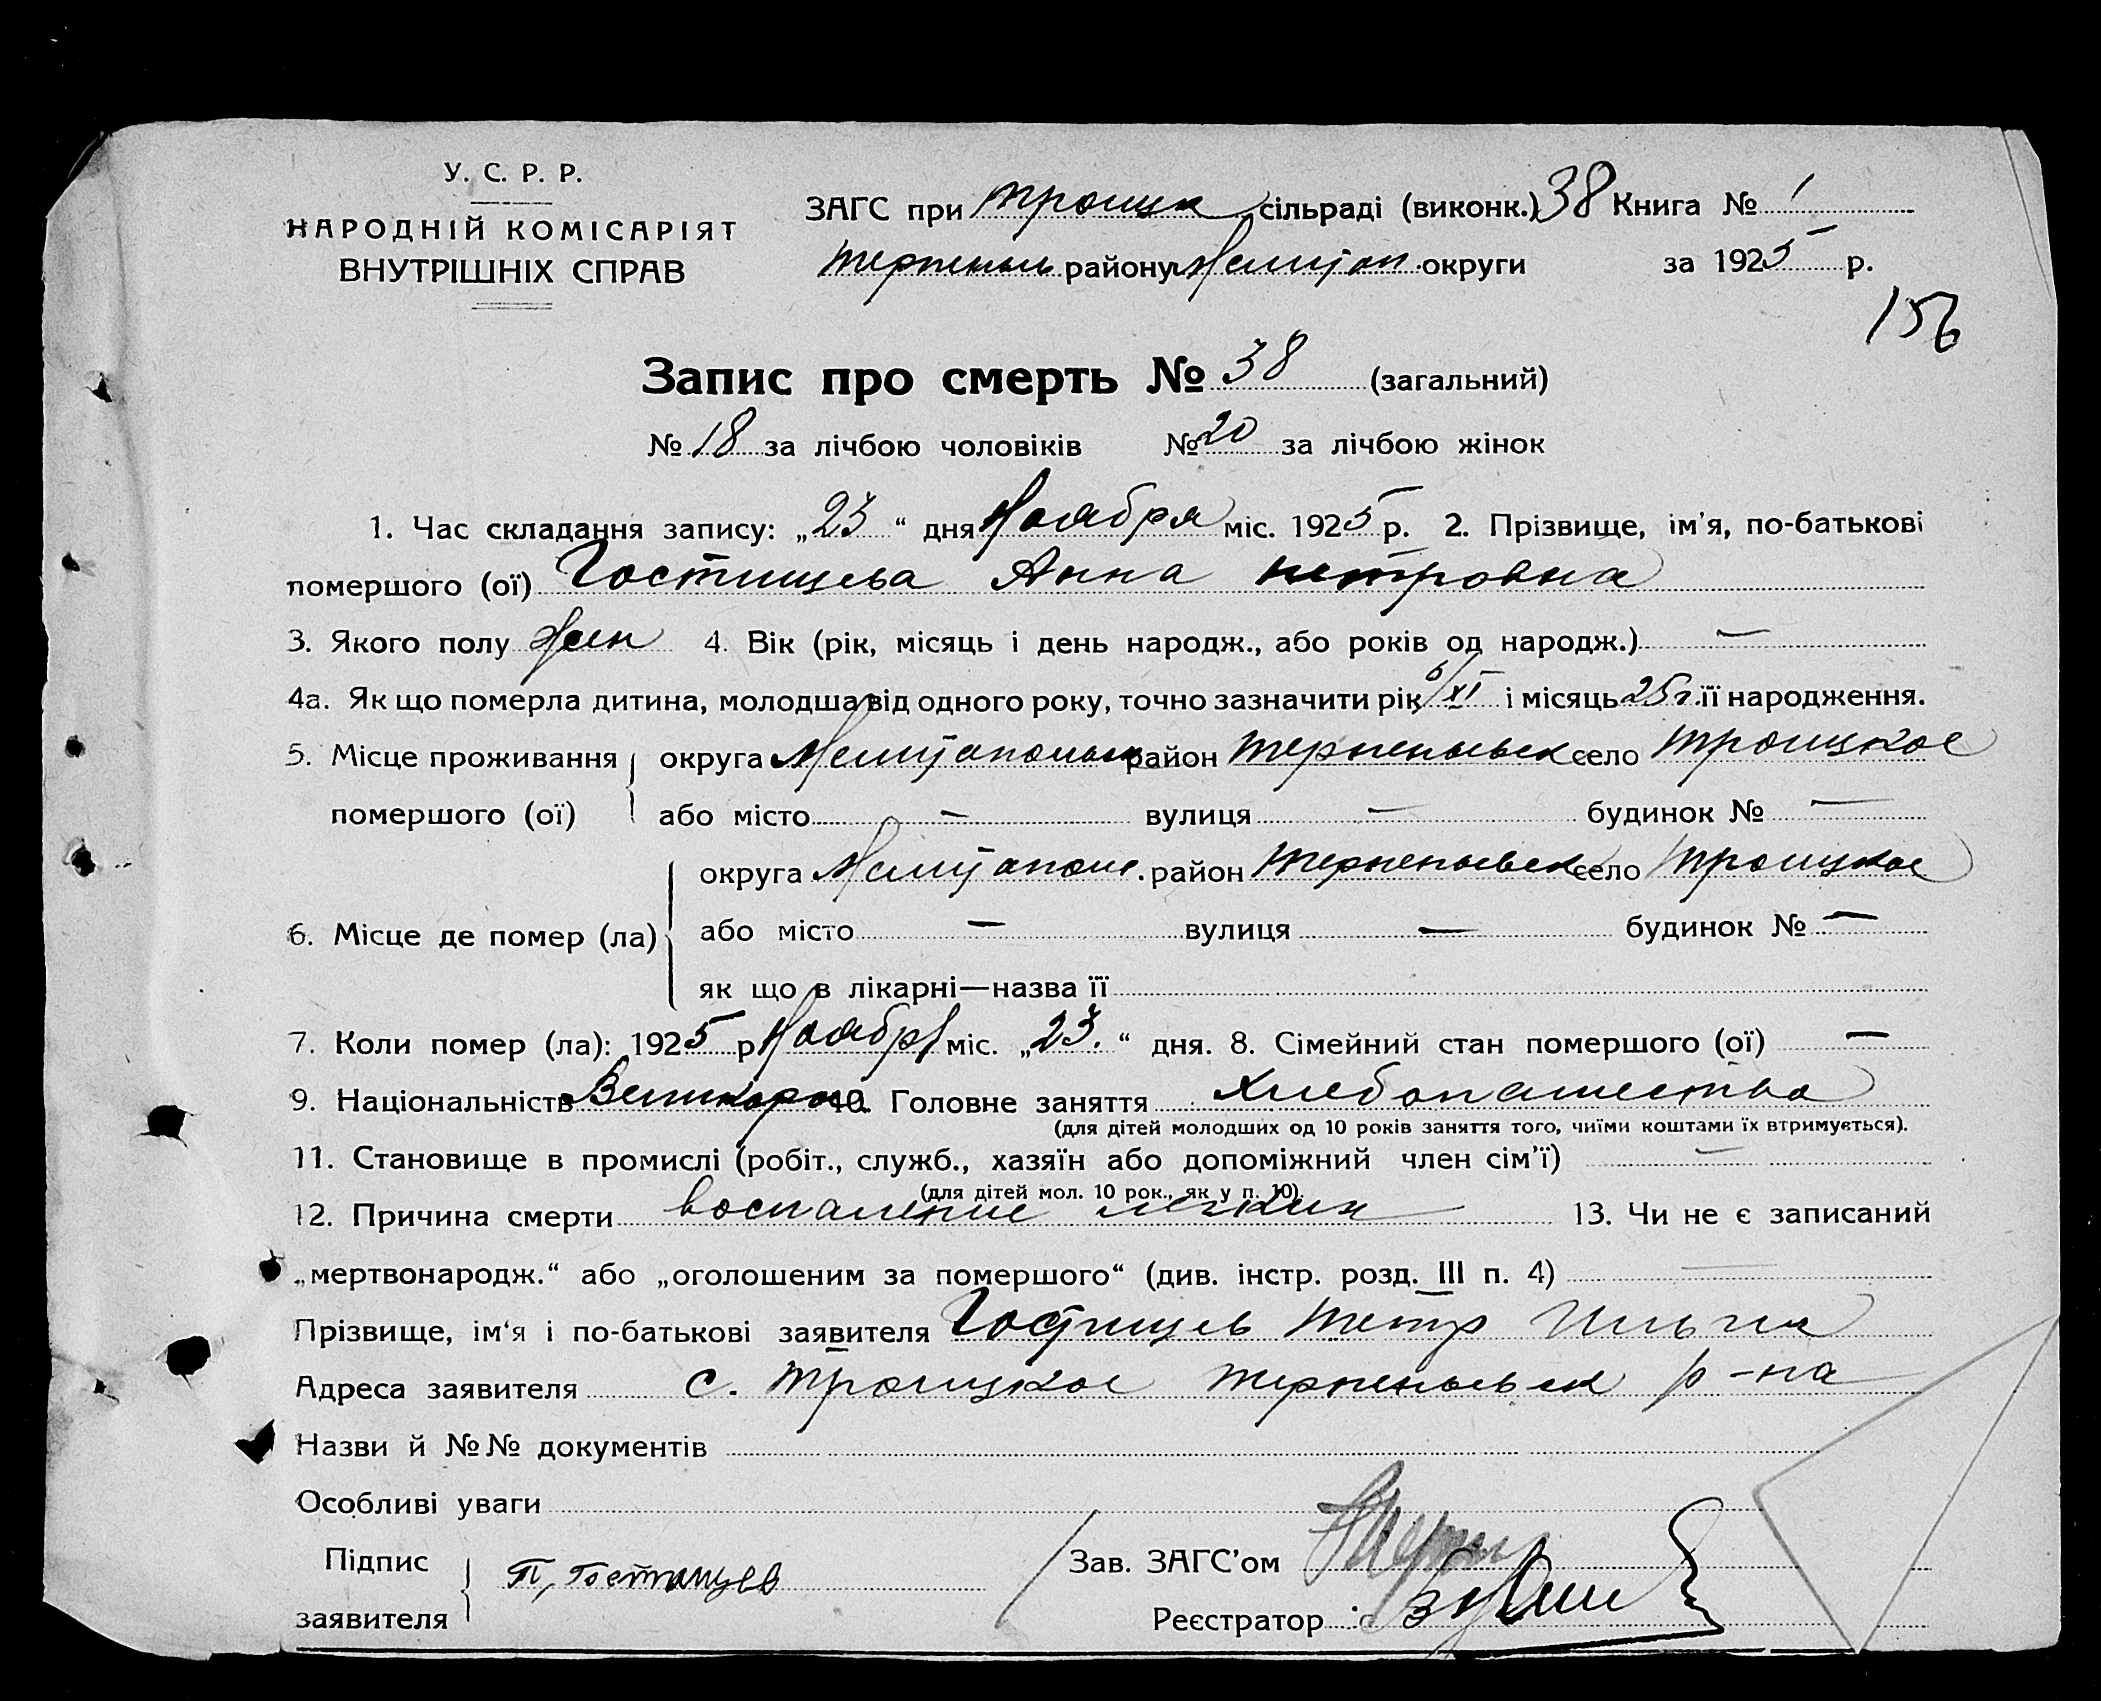 У. С. Р. Р.
НАРОДНІЙ КОМІСАРІЯТ
ВНУТРІШНІХ СПРАВ
ЗАГС при Троицк сільраді (виконк.) 38 Книга № 1
Терпеньев району Мелитоп округи за 1925 р.
156
Запис про смерть № 38 (загальний)
№ 18 за лічбою чоловіків № 20 за лічбою жінок
1. Час складання запису: „23“ дня Ноября міс. 1925 р. 2. Прізвище, ім'я, по-батькові
помершого (ої) Гостищева Анна Петровна
3. Якого полу жен 4. Вік (рік, місяць і день народж., або років од народж.) —
4а. Як що померла дитина, молодша від одного року, точно зазначити рік 6/XI і місяць 25 г. її народження.
5. Місце проживання округа Мелитопольск район Терпеньевск село Троицкое
помершого (ої) або місто — вулиця — будинок № —
округа Мелитопол. район Терпеньевск село Троицкое
6. Місце де помер (ла) або місто — вулиця — будинок № —
як що в лікарні—назва її
7. Коли помер (ла): 1925 р Ноября міс. „23.“ дня. 8. Сімейний стан помершого (ої) —
9. Національність Великорос 10. Головне заняття Хлебопашество
(для дітей молодших од 10 років заняття того, чиїми коштами їх втримується).
11. Становище в промислі (робіт., служб., хазяїн або допоміжний член сім'ї) —
(для дітей мол. 10 рок., як у п. 10).
12. Причина смерти воспаление легких 13. Чи не є записаний
„мертвонародж.“ або „оголошеним за помершого“ (див. інстр. розд. III п. 4) —
Прізвище, ім'я і по-батькові заявителя Гостищев Петр Ильич
Адреса заявителя с. Троицкое Терпеньевск р-на
Назви й №№ документів
Особливі уваги
Підпис
заявителя П, Гостищев
Зав. ЗАГС'ом
Реєстратор